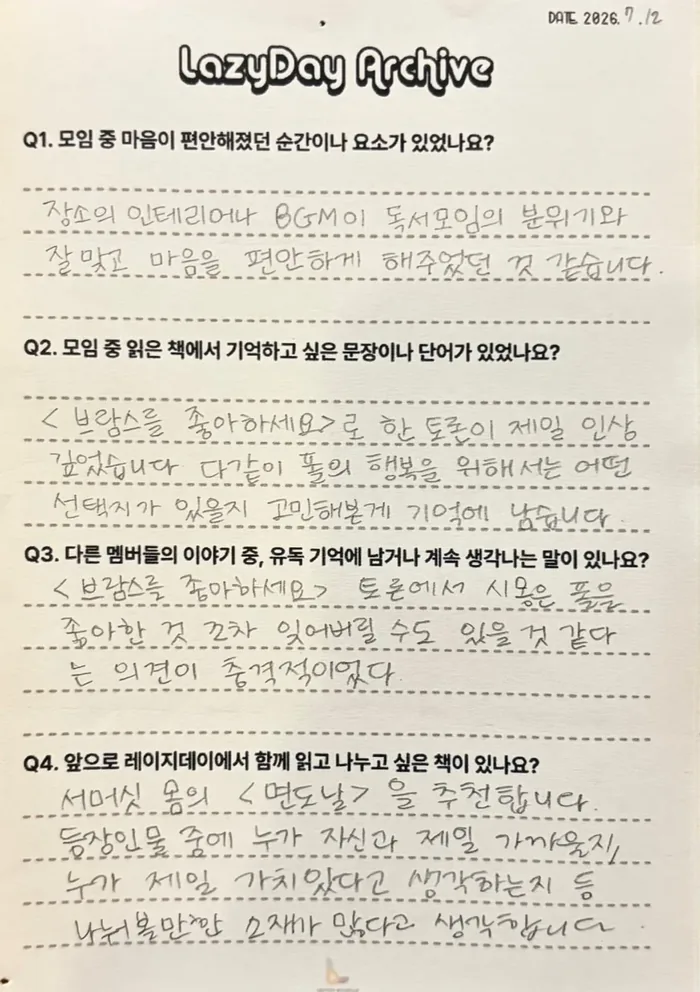 DATE 2026. 7. 12
LazyDay Archive
Q1. 모임 중 마음이 편안해졌던 순간이나 요소가 있었나요?
장소의 인테리어나 BGM이 독서모임의 분위기와
잘맞고 마음을 편안하게 해주었던 것 같습니다.
Q2. 모임 중 읽은 책에서 기억하고 싶은 문장이나 단어가 있었나요?
<브람스를 좋아하세요>로 한 토론이 제일 인상
깊었습니다 다같이 폴의 행복을 위해서는 어떤
선택지가 있을지 고민해본게 기억에 남습니다.
Q3. 다른 멤버들의 이야기 중, 유독 기억에 남거나 계속 생각나는 말이 있나요?
<브람스를 좋아하세요> 토론에서 시몽은 폴을
좋아한 것 조차 잊어버릴 수도 있을 것 같다
는 의견이 충격적이었다.
Q4. 앞으로 레이지데이에서 함께 읽고 나누고 싶은 책이 있나요?
서머싯 몸의 <면도날>을 추천합니다.
등장인물 중에 누가 자신과 제일 가까울지,
누가 제일 가치있다고 생각하는지 등
나눠볼만한 소재가 많다고 생각합니다